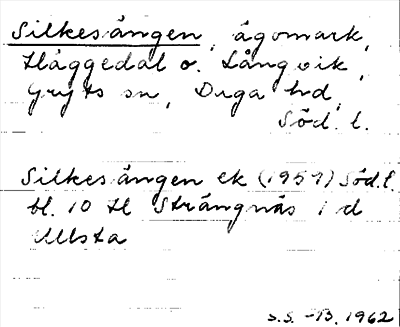 Silkesängen, ägomark,
Häggedal o. Långvik,
Gryts sn, Daga hd,
Söd. l.
Silkesängen ek (1957) Söd.l.
bl. 10 tl Strängnäs 1 d
Ullsta
S.S. -B. 1962